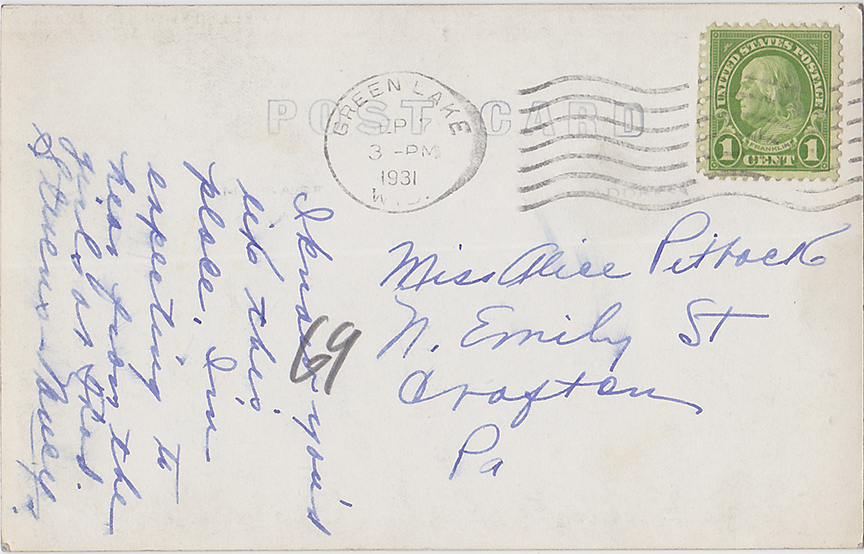 POST CARD
GREEN LAKE
SEP 7
3 -PM
1931
WIS.
UNITED STATES POSTAGE
FRANKLIN
1 CENT 1
I know you'd
like this
place. I'm
expecting to
hear from the
girls at
69
Miss Alice Pittock
N. Emily St
Crafton
Pa